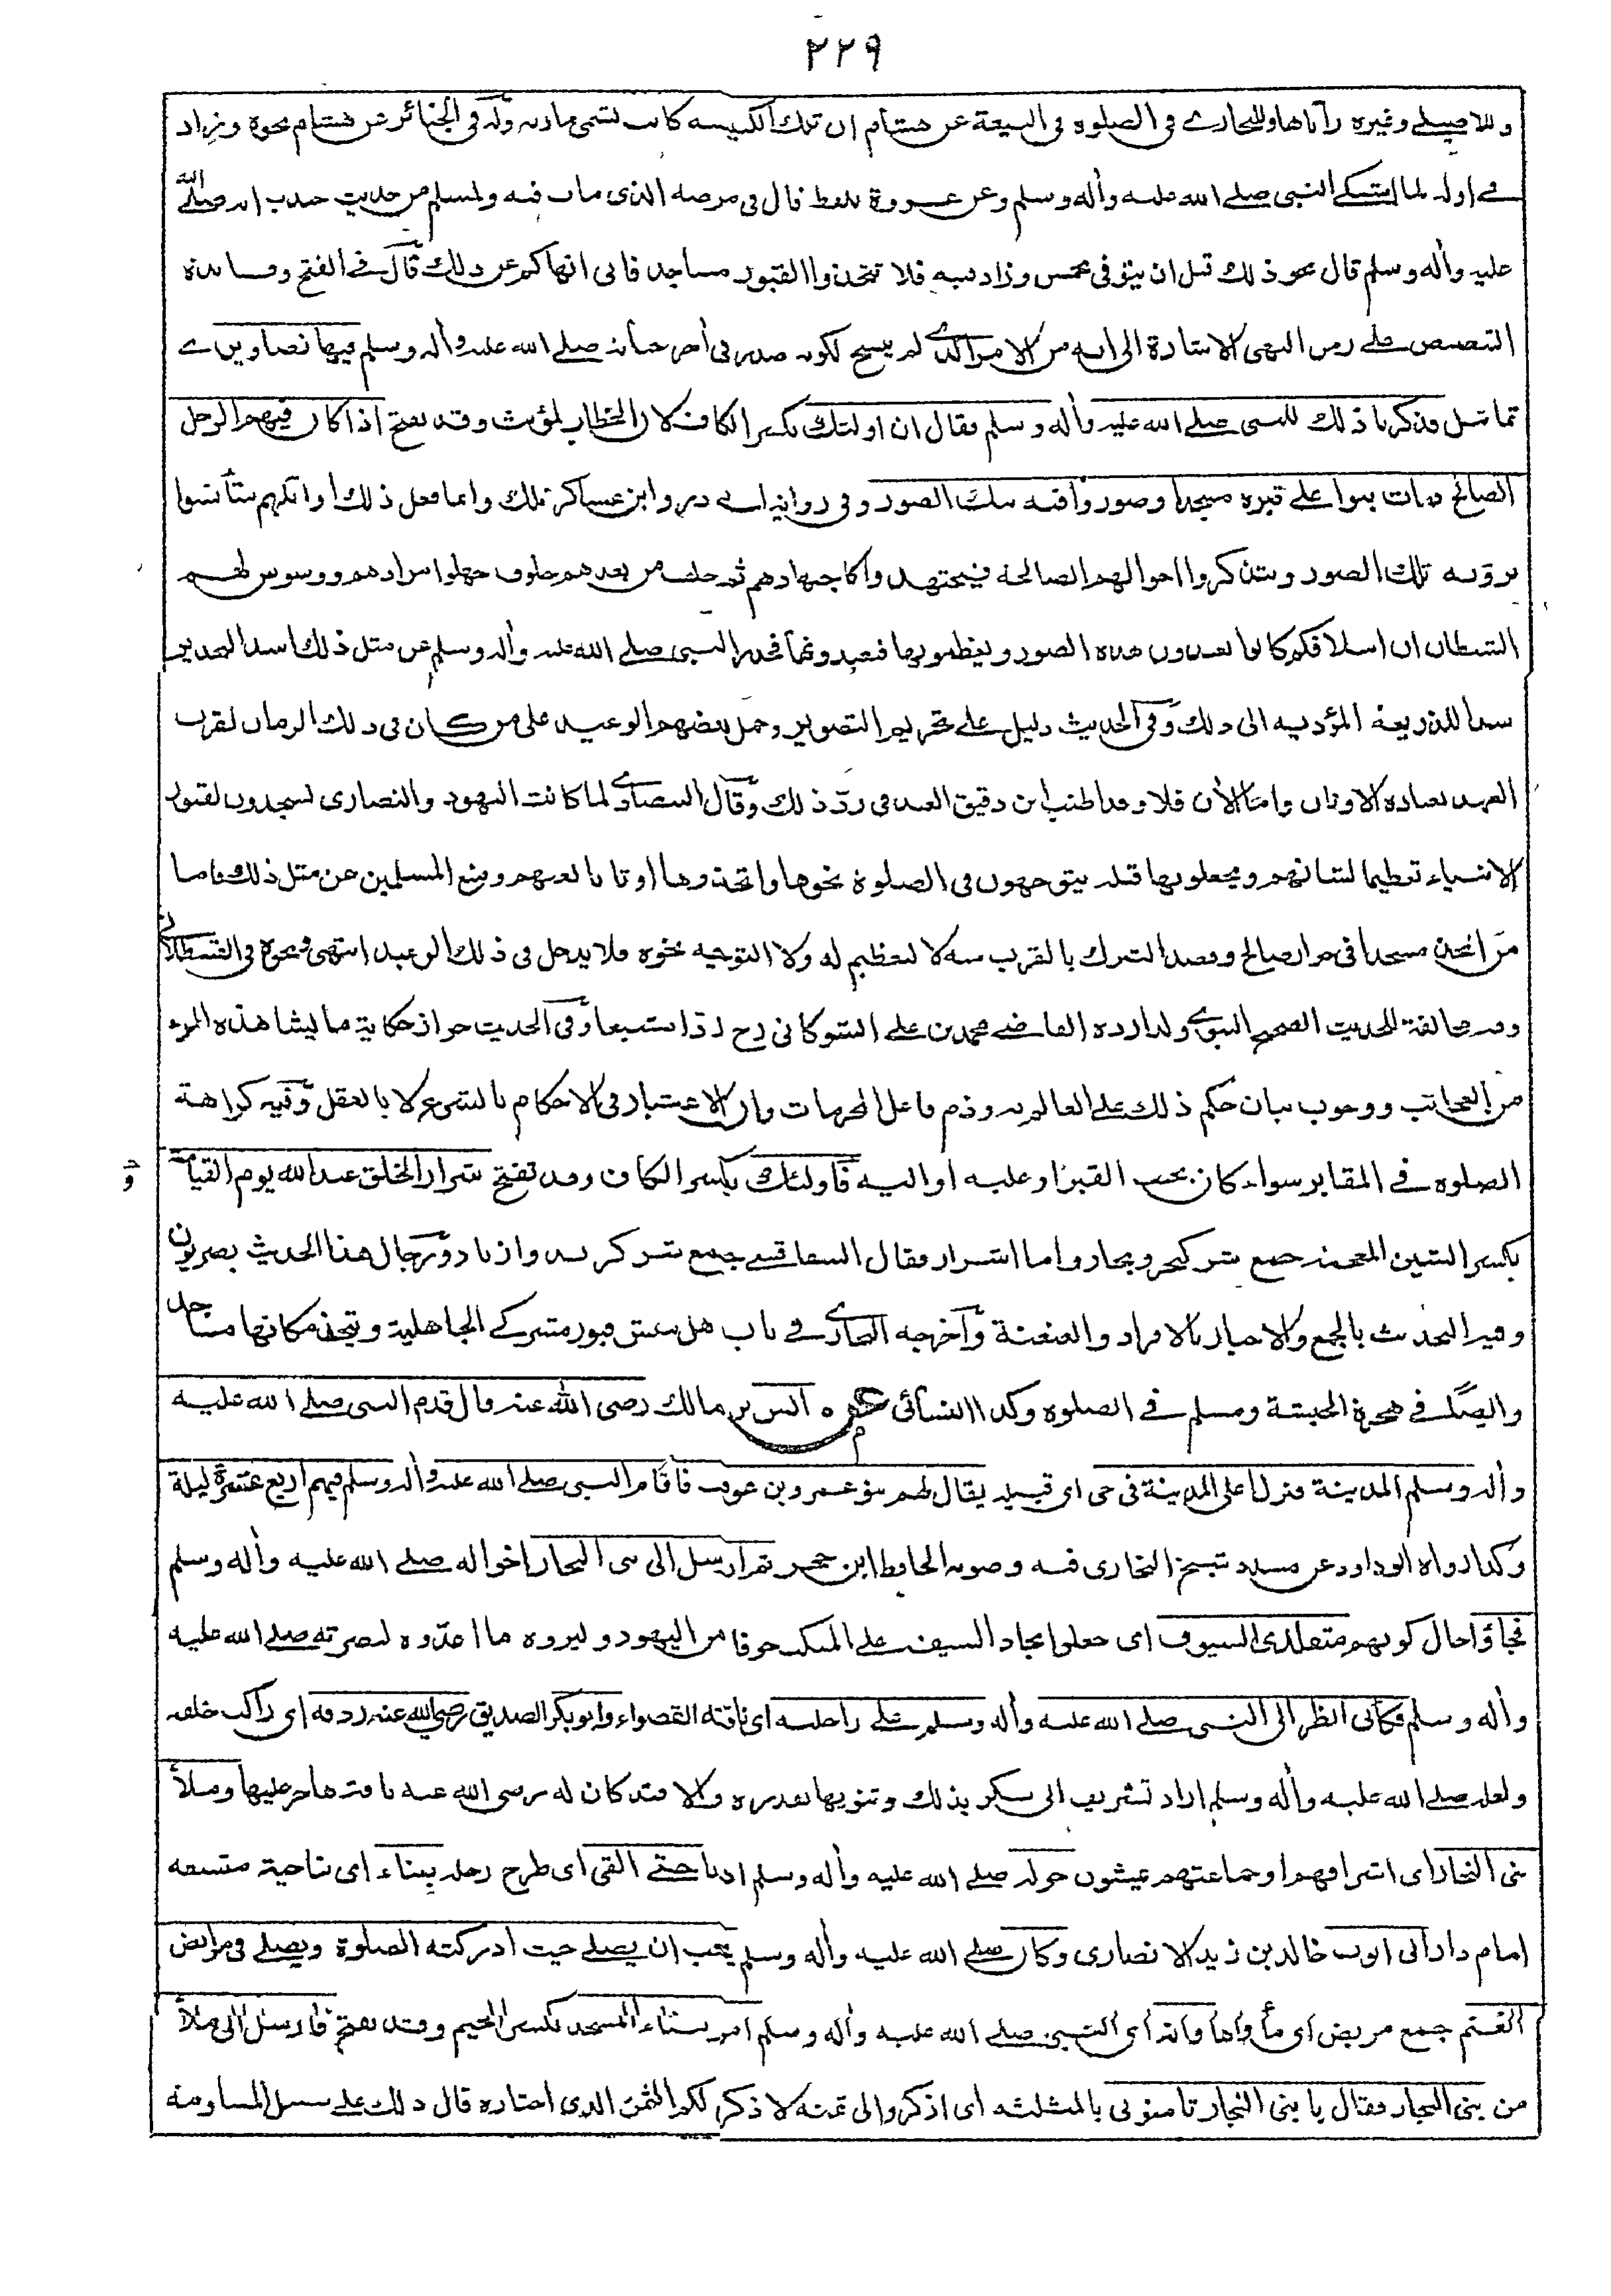 ٢٢٩
وللاصيلي وغيره رأتاها وللبخاري في الصلوة في البيعة عن هشام ان تلك الكنيسة كانت تسمى مارية وله في الجنائز عن هشام نحوه وزاد
في اوله لما اشتكى النبي صلى الله عليه وأله وسلم وعن عروة بلفظ قال في مرضه الذي مات فيه ولمسلم من حديث جندب انه صلى الله
عليه وأله وسلم قال نحو ذلك قبل ان يتوفى بخمس وزاد فيه فلا تتخذوا القبور مساجد فاني انهاكم عن ذلك قال في الفتح وفائدة
التنصيص على زمن النهي الاشارة الى انه من الامر الذي لم ينسخ لكونه صدر في أخر حياته صلى الله عليه وأله وسلم فيها تصاوير اي
تماثيل فذكرتا ذلك للنبي صلى الله عليه وأله وسلم فقال ان اولئك بكسر الكاف لان الخطاب لمؤنث وقد تفتح اذا كان فيهم الرجل
الصالح فمات بنوا على قبره مسجدا وصوروا فيه تلك الصور وفي رواية ابي ذر وابن عساكر تيك وانما فعل ذلك اوائلهم ليتأنسوا
برؤية تلك الصور ويتذكروا احوالهم الصالحة فيجتهدوا كاجتهادهم ثم خلف من بعدهم خلوف جهلوا مرادهم ووسوس لهم
الشيطان ان اسلافكم كانوا يعبدون هذه الصور ويعظمونها فعبدوها فحذر النبي صلى الله عليه وأله وسلم عن مثل ذلك اسد التحذير
سدا للذريعة المؤدية الى ذلك وفي الحديث دليل على تحريم التصوير وحمل بعضهم الوعيد على من كان في ذلك الزمان لقرب
العهد بعبادة الاوثان واما الأن فلا وقد اطنب ابن دقيق العيد في رد ذلك وقال البيضاوي لما كانت اليهود والنصارى يسجدون لقبور
الانبياء تعظيما لشانهم ويجعلونها قبلة يتوجهون في الصلوة نحوها واتخذوها اوثانا لعنهم ومنع المسلمين عن مثل ذلك فاما
من اتخذ مسجدا في جوار صالح وقصد التبرك بالقرب منه لا لتعظيم له ولا التوجيه نحوه فلا يدخل في ذلك الوعيد انتهى ونحوه في القسطلاني
وفيه مخالفة للحديث الصحيح النبوي ولذا رده القاضي محمد بن علي الشوكاني رح ردا مشبعا وفي الحديث جواز حكاية ما يشاهده المرء
من العجائب ووجوب بيان حكم ذلك على العالم به وذم فاعل المحرمات وان الاعتبار في الاحكام بالشرع لا بالعقل وفيه كراهة
الصلوة في المقابر سواء كان بجنب القبر او عليه او اليه فاولئك بكسر الكاف وقد تفتح شرار الخلق عند الله يوم القيامة
بكسر الشين المعجمة جمع شر كبحر وبحار واما اشرار فقال السفاقسي جمع شر كزند وازناد ورجال هذا الحديث بصريون
وفيه التحديث بالجمع والاخبار بالافراد والعنعنة وأخرجه البخاري في باب هل تنبش قبور مشركي الجاهلية ويتخذ مكانها مساجد
وايضا في هجرة الحبشة ومسلم في الصلوة وكذا النسائي عن انس بن مالك رضي الله عنه قال قدم النبي صلى الله عليه
وأله وسلم المدينة فنزل اعلى المدينة في حي اي قبيلة يقال لهم بنو عمرو بن عوف فاقام النبي صلى الله عليه وأله وسلم فيهم اربع عشرة ليلة
وكذا رواه ابوداود عن مسدد شيخ البخاري فيه وصوبه الحافظ ابن حجر ثم ارسل الى بني النجار اخواله صلى الله عليه وأله وسلم
فجاؤا حال كونهم متقلدي السيوف اي جعلوا نجاد السيف على المنكب خوفا من اليهود وليروه ما اعدوه لنصرته صلى الله عليه
وأله وسلم فكأني انظر الى النبي صلى الله عليه وأله وسلم على راحلته اي ناقته القصواء وابو بكر الصديق رضي الله عنه ردفه اي راكب خلفه
ولعله صلى الله عليه وأله وسلم اراد تشريف ابي بكر بذلك وتنويها بقدره والا فقد كان له رضي الله عنه ناقة هاجر عليها وملأ
بني النجار اي اشرافهم او جماعتهم يمشون حوله صلى الله عليه وأله وسلم ادبا حتى القى اي طرح رحله بفناء اي ناحية متسعة
امام دار ابي ايوب خالد بن زيد الانصاري وكان صلى الله عليه وأله وسلم يحب ان يصلي حيث ادركته الصلوة ويصلي في مرابض
الغنم جمع مربض اي مأواها وانه اي النبي صلى الله عليه وأله وسلم امر ببناء المسجد بكسر الجيم وقد تفتح فارسل الى ملأ
من بني النجار فقال يا بني النجار ثامنوني بالمثلثة اي اذكروا لي ثمنه لاذكر لكم الثمن الذي اختاره قال ذلك على سبيل المساومة